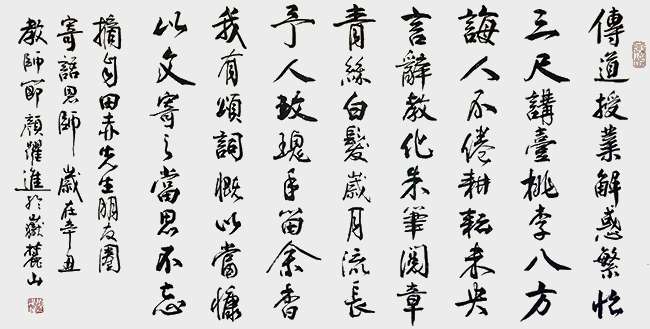 傳道授業解惑繁忙
三尺講臺桃李八方
誨人不倦耕耘未央
言辭教化朱筆閱章
青絲白髮歲月流長
予人玫瑰手留余香
我有頌詞慨以當慷
以文寄之當思不忘
摘自田赤先生朋友圈
寄語恩師 歲在辛丑
教師節顏躍進於嶽麓山